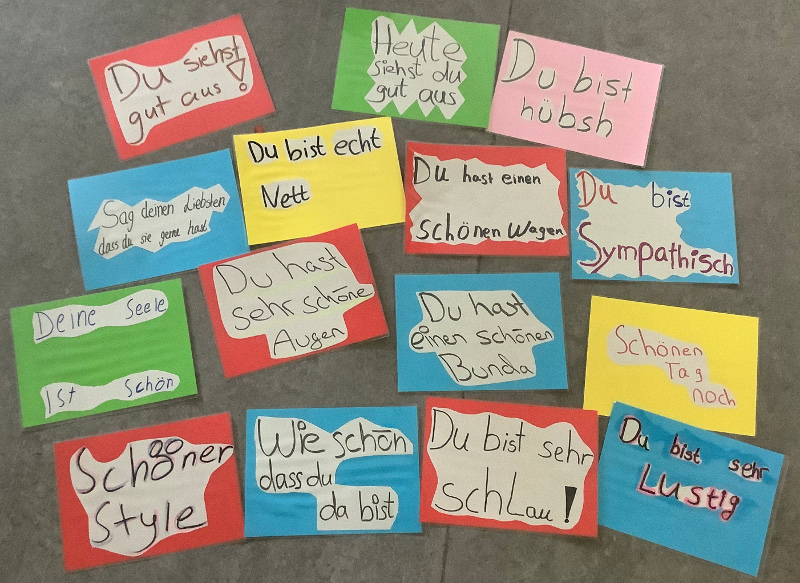 Du siehst
gut aus!
Heute
siehst du
gut aus
Du bist
hübsh
Du bist echt
Nett
Du hast einen
schönen Wagen
Sag deinen Liebsten
dass du sie gerne hast
Du bist
Sympathisch
Du hast
sehr schöne
Augen
Deine Seele
Ist Schön
Du hast
einen schönen
Bunda
Schönen
Tag
noch
Schöner
Style
Wie schön
dass du
da bist
Du bist sehr
schLau!
Du bist sehr
LUstig